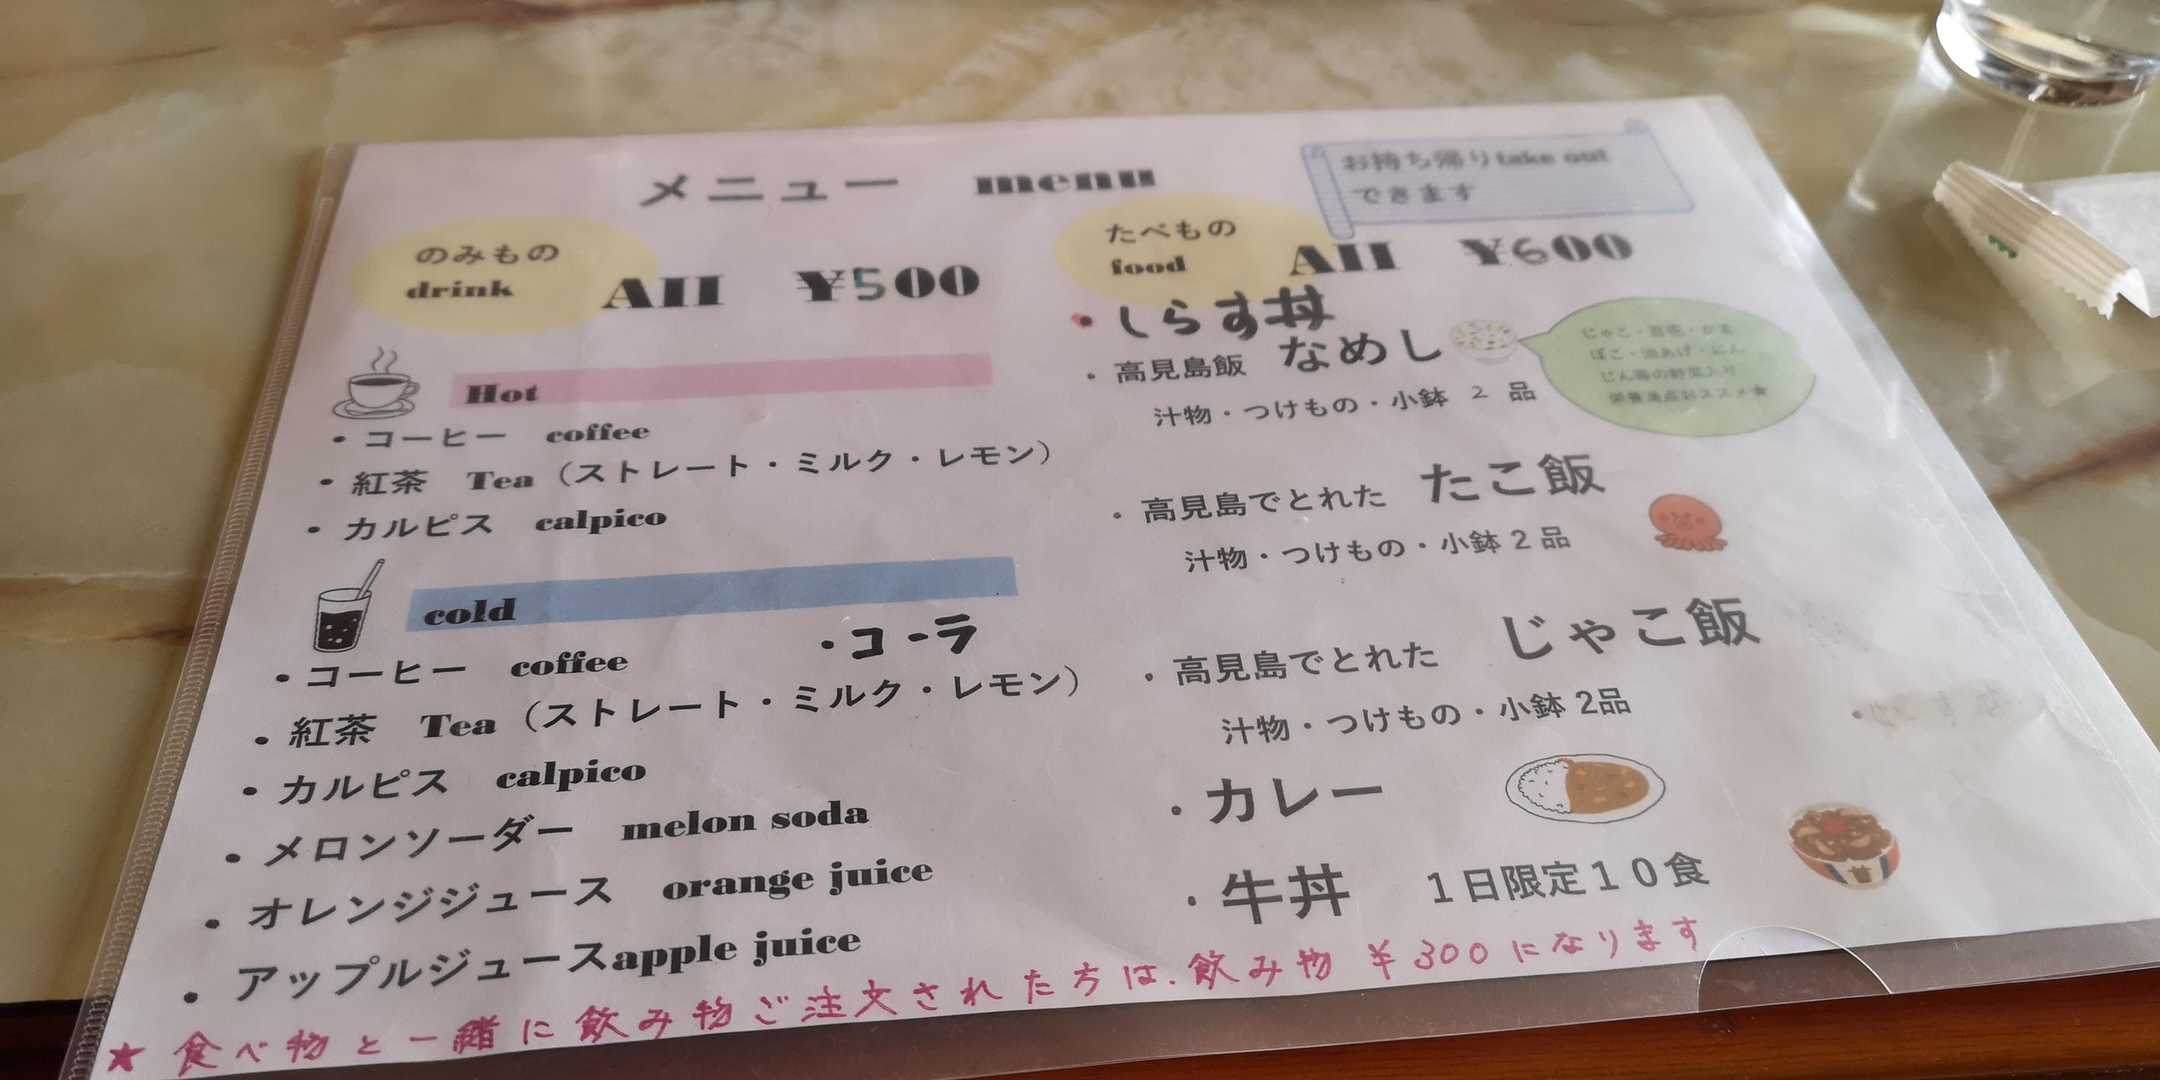 メニュー menu
お持ち帰りtake out
できます
のみもの
drink All ¥500
Hot
・コーヒー coffee
・紅茶 Tea（ストレート・ミルク・レモン）
・カルピス calpico
cold
・コーラ
・コーヒー coffee
・紅茶 Tea（ストレート・ミルク・レモン）
・カルピス calpico
・メロンソーダー melon soda
・オレンジジュース orange juice
・アップルジュースapple juice
たべもの
food All ¥600
・しらす丼
・高見島飯 なめし
汁物・つけもの・小鉢 2 品
じゃこ・ ・かま
ぼこ・油あげ・にん
じん等の野菜入り
栄養満点おススメ★
・高見島でとれた たこ飯
汁物・つけもの・小鉢 2 品
・高見島でとれた じゃこ飯
汁物・つけもの・小鉢 2品
・カレー
・牛丼 1日限定10食
★ 食べ物と一緒に飲み物ご注文された方は、飲み物 ¥300になります